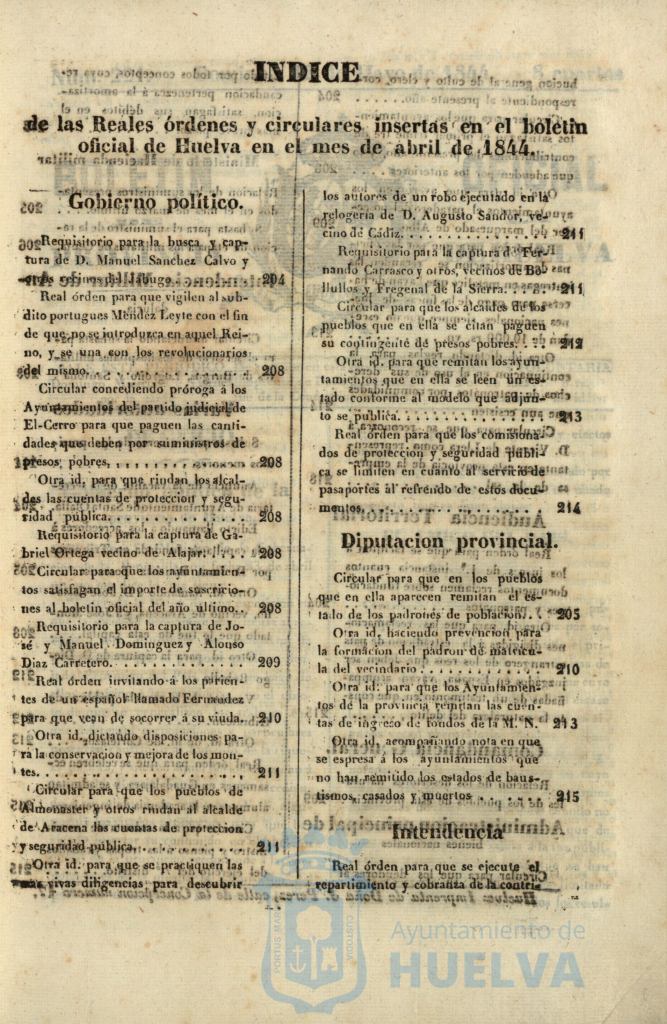 INDICE
de las Reales órdenes y circulares insertas en el boletin
oficial de Huelva en el mes de abril de 1844.
Gobierno político.
Requisitorio para la busca y cap-
tura de D. Manuel Sanchez Calvo y
otros vecinos del Jabugo. 204
Real órden para que vigilen al sub-
dito portugues Méndez Leyte con el fin
de que no se introduzca en aquel Rei-
no, y se una con los revolucionarios
del mismo. . . . . . . . . . . 208
Circular concediendo próroga á los
Ayuntamientos del partido judicial de
El-Cerro para que paguen las canti-
dades que deben por suministros de
presos pobres. . . . . . . . . . 208
Otra id. para que rindan los alcal-
des las cuentas de proteccion y segu-
ridad pública. . . . . . . . . . 208
Requisitorio para la captura de Ga-
briel Ortega vecino de Alajar. . . . 208
Circular para que los ayuntamien-
tos satisfagan el importe de suscricio-
nes al boletin oficial del año último. . 208
Requisitorio para la captura de Jo-
sé y Manuel Dominguez y Alonso
Diaz Carretero. . . . . . . . . . 209
Real órden invitando á los parien-
tes de un español llamado Fernandez
para que vean de socorrer á su viuda. 210
Otra id. dictando disposiciones pa-
ra la conservacion y mejora de los mon-
tes. . . . . . . . . . . . . . 211
Circular para que los pueblos de
Almonaster y otros rindan al alcalde
de Aracena las cuentas de proteccion
y seguridad pública. . . . . . . . 211
Otra id. para que se practiquen las
mas vivas diligencias para descubrir
los autores de un robo ejecutado en la
relogería de D. Augusto Sandor, ve-
cino de Cádiz. . . . . . . . . . 211
Requisitorio para la captura de Fer-
nando Carrasco y otros, vecinos de Bo-
llullos y Fregenal de la Sierra. . . . 211
Circular para que los alcaldes de los
pueblos que en ella se citan paguen
su contingente de presos pobres. . . . 212
Otra id. para que remitan los ayun-
tamientos que en ella se leen un es-
tado conforme al modelo que adjun-
to se publica. . . . . . . . . . 213
Real órden para que los comisiona-
dos de proteccion y seguridad públi-
ca se limiten en cuanto al servicio de
pasaportes al refrendo de estos docu-
mentos. . . . . . . . . . . . 214
Diputacion provincial.
Circular para que en los pueblos
que en ella aparecen remitan el es-
tado de los padrones de poblacion. . . 205
Otra id. haciendo prevencion para
la formacion del padron de matricu-
la del vecindario . . . . . . . . 210
Otra id. para que los Ayuntamien-
tos de la provincia remitan las cuen-
tas de ingreso de fondos de la M. N. 213
Otra id. acompañando nota en que
se espresa á los ayuntamientos que
no han remitido los estados de baus-
tismos, casados y muertos . . . . . 215
Intendencia
Real órden para que se ejecute el
repartimiento y cobranza de la contri-
PORTUS MARIS
CUSTODIA
Ayuntamiento de
HUELVA